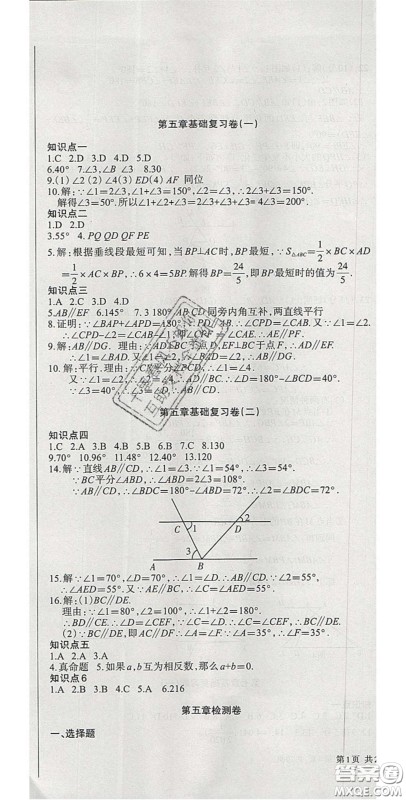 第五章基础复习卷(一)
知识点一
1.C 2.D 3.D 4.D 5.D
6.40° 7.∠3,∠B ∠3 8.30
9.(1)∠2 (2)∠4 (3)ED (4)AF 同位
10.解:∵∠1=2∠3,∠1+∠3=150°,∠2=∠3,∴∠1+∠2=150°.
解得∠3=50°.所以∠1+∠2+∠3=∠1+∠3+∠3=4∠3=200°.
知识点二
1.D 2.D
3.55° 4.PQ QD QF PE
5.解:根据垂线段最短可知,当BP⊥AC时,BP最短,∵S△ABC=1/2×BC×AD
=1/2×AC×BP,∴6×4=5BP.解得BP=24/5,即BP最短时的值为24/5.
知识点三
1.A 2.C 3.D 4.D
5.AB∥EF 6.145° 7.3 180° AB CD 同旁内角互补,两直线平行
8.证明:∵∠BAP+∠APD=180°,∴PD∥AB.∴∠CPD=∠CAB.又∵∠1=∠2.
∴∠CPD-∠2=∠CAB-∠1.即∠CPF=∠CAE.∴AE∥PF.
9.解:AB∥DG.理由:∵AD⊥BC于点D,EF⊥BC于点F,∴AD∥EF.
∴∠1=∠BAD.又∵∠1=∠2,∴∠2=∠BAD.∴AB∥DG.
10.解:平行.理由:∵CE平分∠BCD,∴∠1=∠4.
又∵∠1=∠2
第五章基础复习卷(二)
知识点四
1.C 2.A 3.B 4.B 5.B 6.B 7.C 8.130
9.70° 10.96° 11.48° 12.40° 13.120
14.解:∵直线AB∥CD,∴∠1=∠3=54°.∵∠1=54°,∴∠3=54°.
∵BC平分∠ABD,∴∠ABD=2∠3=108°.
∵AB∥CD,∴∠BDC=180°-∠ABD=72°.∴∠2=∠BDC=72°.
C 1 2 D
3
A B
15.解:∵∠1=70°,∠D=70°,∴∠1=∠D.∴AB∥CD.∵∠2=55°,
∴∠AED=55°.又∵∠D=70°,∴∠A=55°.
16.解:(1)BC∥DE.
理由:∵∠1+∠2=180°,∠2=∠4,∴∠1+∠4=180°.
∴BD∥CE.∴∠D=∠CEF.∵∠C=∠D,∴∠C=∠CEF.∴BC∥DE.
(2)∵BC∥DE,即AC∥DF,∴∠A=∠F.∵∠A=35°,∴∠F=35°.
知识点五
1.A 2.A 3.A
4.真命题 5.如果a,b互为相反数,那么a+b=0.
知识点6
1.A 2.B 3.B 4.C 5.A 6.216
第五章检测卷
一、选择题
第1页 共2
答案圈
MXQE.COM